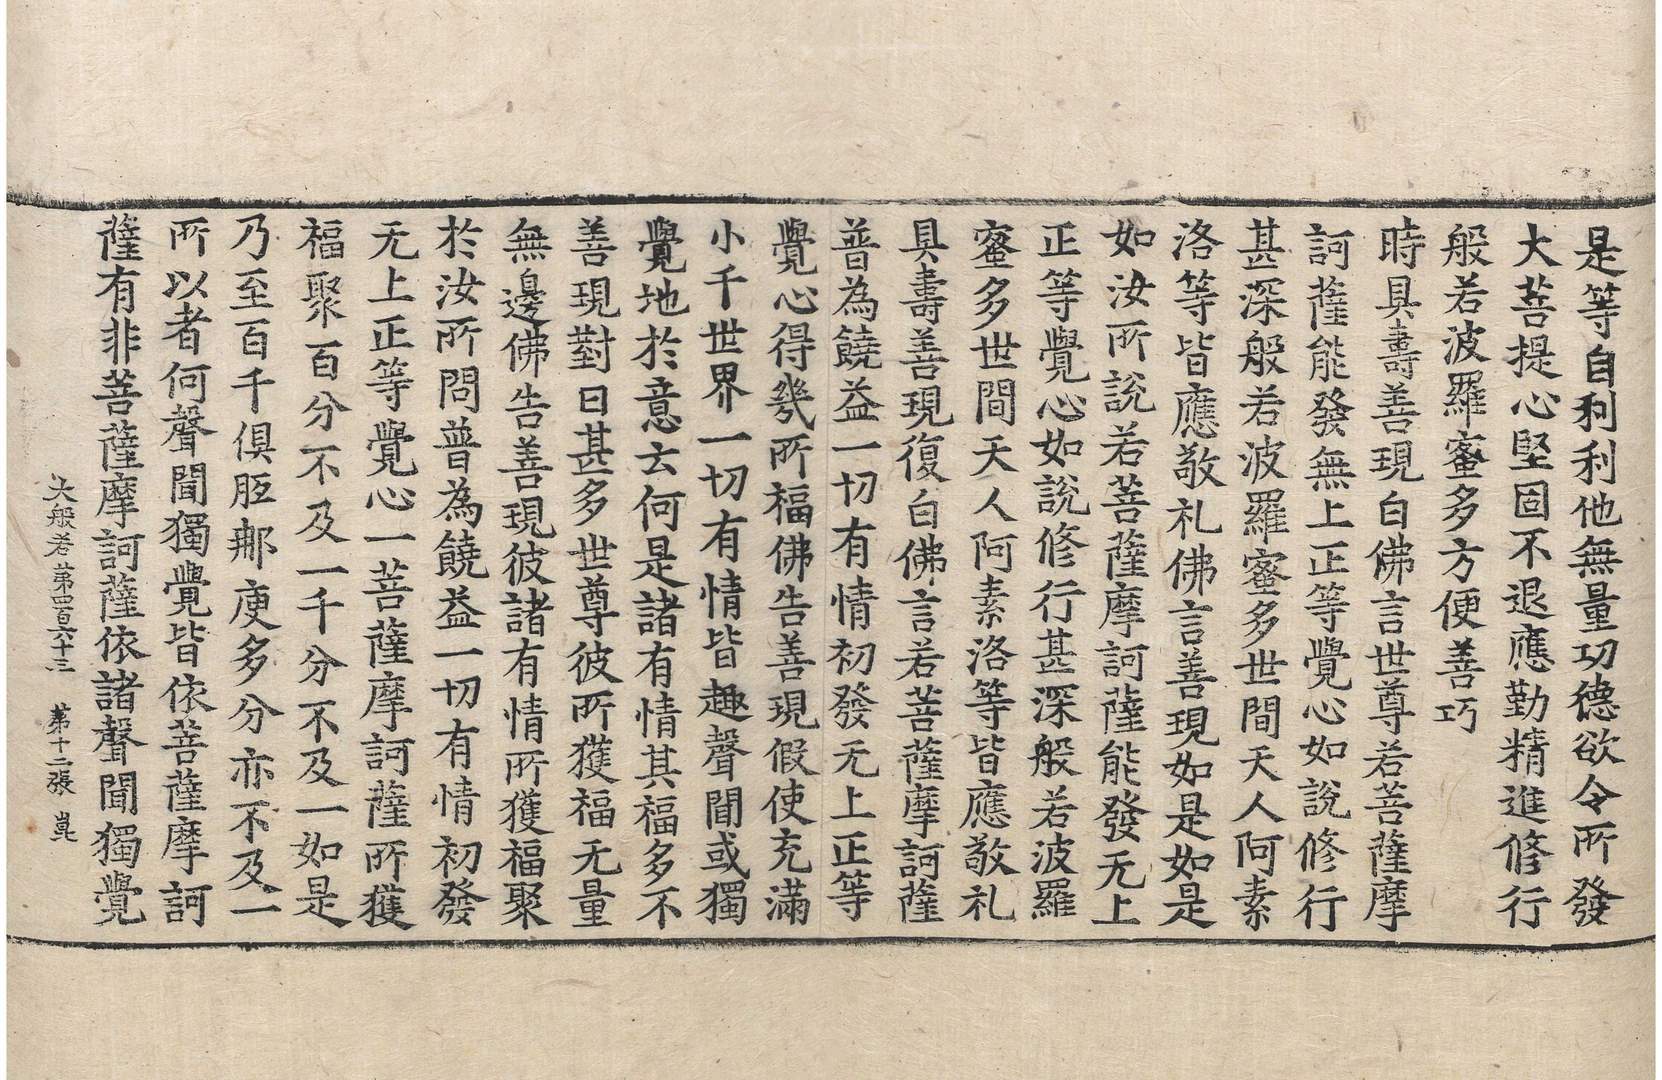 是等自利利他無量功德欲令所發
大菩提心堅固不退應勤精進修行
般若波羅蜜多方便善巧
時具壽善現白佛言世尊若菩薩摩
訶薩能發無上正等覺心如說修行
甚深般若波羅蜜多世間天人阿素
洛等皆應敬礼佛言善現如是如是
如汝所說若菩薩摩訶薩能發无上
正等覺心如說修行甚深般若波羅
蜜多世間天人阿素洛等皆應敬礼
具壽善現復白佛言若菩薩摩訶薩
普為饒益一切有情初發无上正等
覺心得幾所福佛告善現假使充滿
小千世界一切有情皆趣聲聞或獨
覺地於意云何是諸有情其福多不
善現對曰甚多世尊彼所獲福无量
無邊佛告善現彼諸有情所獲福聚
於汝所問普為饒益一切有情初發
无上正等覺心一菩薩摩訶薩所獲
福聚百分不及一千分不及一如是
乃至百千俱胝那庾多分亦不及一
所以者何聲聞獨覺皆依菩薩摩訶
薩有非菩薩摩訶薩依諸聲聞獨覺
大般若第四百六十三 第十二張 崑